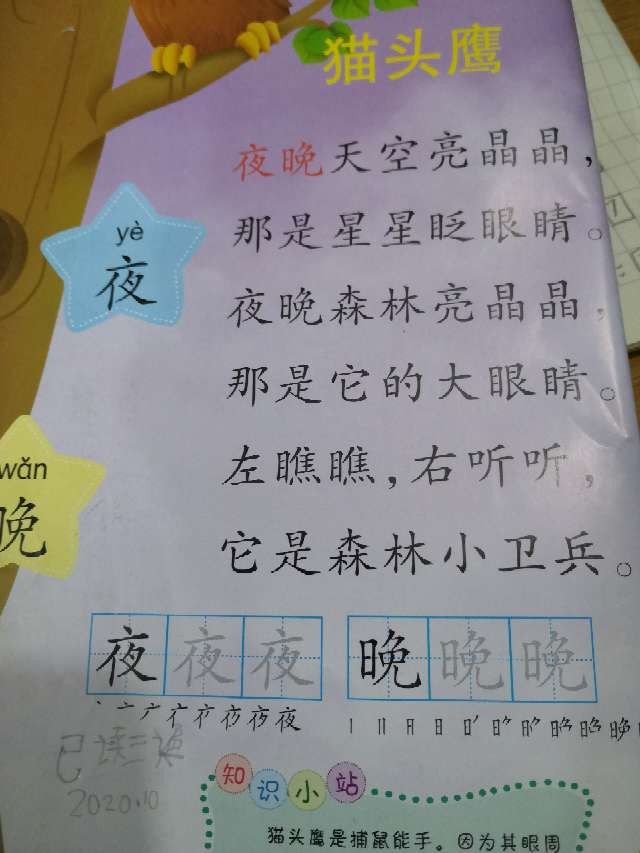 猫头鹰
夜晚天空亮晶晶，
那是星星眨眼睛。
夜晚森林亮晶晶，
那是它的大眼睛。
左瞧瞧，右听听，
它是森林小卫兵。
yè
夜
wǎn
晚
夜夜夜 晚晚晚
已读三遍
2020.10
知识小站
猫头鹰是捕鼠能手。因为其眼周